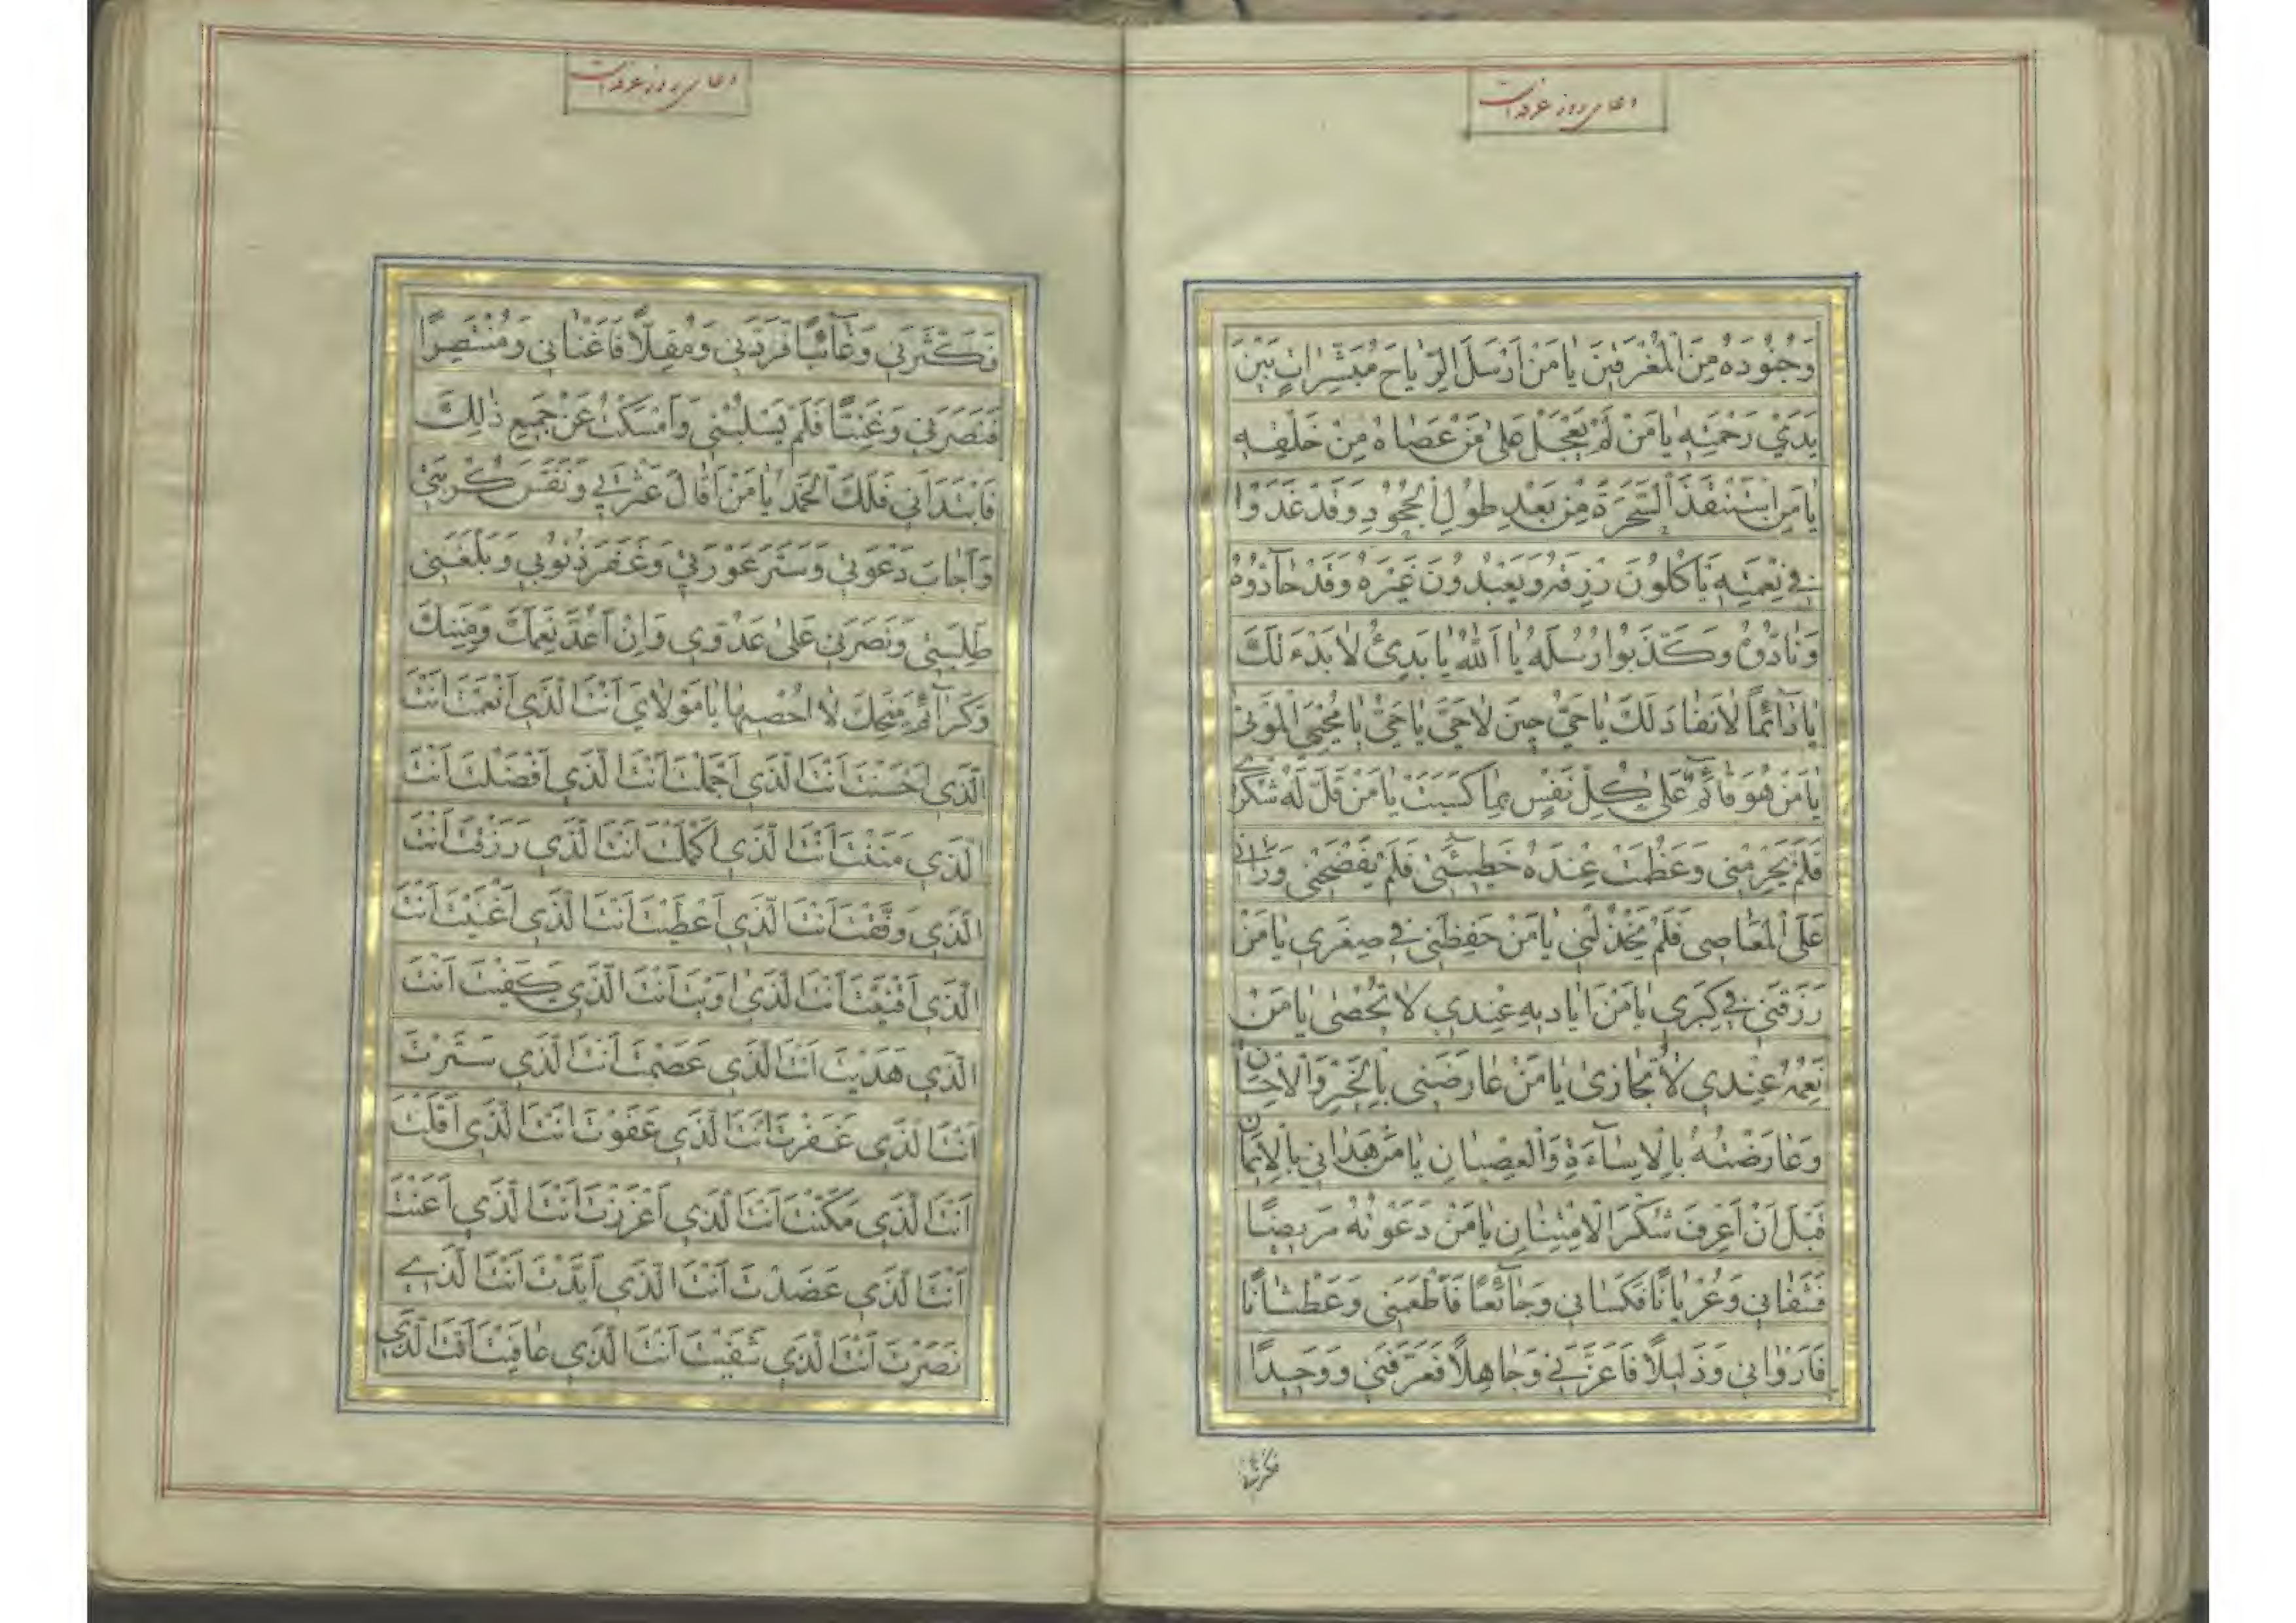 دعای روز عرفه است
وَجُنُودَهُ مِنَ الْمُغْرَقِينَ يَا مَنْ اَرْسَلَ الرِّيَاحَ مُبَشِّرَاتٍ بَيْنَ
يَدَيْ رَحْمَتِهِ يَا مَنْ لَمْ يَعْجَلْ عَلَى مَنْ عَصَاهُ مِنْ خَلْقِهِ
يَا مَنِ اسْتَنْقَذَ السَّحَرَةَ مِنْ بَعْدِ طُولِ الْجُحُودِ وَقَدْ غَدَوْا
فِي نِعْمَتِهِ يَاْكُلُونَ رِزْقَهُ وَيَعْبُدُونَ غَيْرَهُ وَقَدْ حَآدُّوهُ
وَنَادُّوهُ وَكَذَّبُوا رُسُلَهُ يَا اَللّٰهُ يَا بَدِيْءُ لَا بَدْءَ لَكَ
يَا دَآئِمًا لَا نَفَادَ لَكَ يَا حَيُّ حِينَ لَا حَيَّ يَا حَيُّ يَا مُحْيِيَ الْمَوْتٰى
يَا مَنْ هُوَ قَآئِمٌ عَلٰى كُلِّ نَفْسٍ بِمَا كَسَبَتْ يَا مَنْ قَلَّ لَهُ شُكْرِي
فَلَمْ يَحْرِمْنِي وَعَظُمَتْ عِنْدَهُ خَطِيۤئَتِي فَلَمْ يَفْضَحْنِي وَرَاٰنِي
عَلَى الْمَعَاصِي فَلَمْ يَخْذُلْنِي يَا مَنْ حَفِظَنِي فِي صِغَرِي يَا مَنْ
رَزَقَنِي فِي كِبَرِي يَا مَنْ اَيَادِيهِ عِنْدِي لَا تُحْصٰى يَا مَنْ
نِعَمُهُ عِنْدِي لَا تُجَازٰى يَا مَنْ عَارَضَنِي بِالْخَيْرِ وَالْاِحْسَانِ
وَعَارَضْتُهُ بِالْاِسَآءَةِ وَالْعِصْيَانِ يَا مَنْ هَدَانِي بِالْاِيمَانِ
قَبْلَ اَنْ اَعْرِفَ شُكْرَ الْاِمْتِنَانِ يَا مَنْ دَعَوْتُهُ مَرِيضًا
فَشَفَانِي وَعُرْيَانًا فَكَسَانِي وَجَآئِعًا فَاَطْعَمَنِي وَعَطْشَانًا
فَاَرْوَانِي وَذَلِيلًا فَاَعَزَّنِي وَجَاهِلًا فَعَرَّفَنِي وَوَحِيدًا
دعای روز عرفه است
فَكَثَّرَنِي وَغَآئِبًا فَرَدَّنِي وَمُقِلًّا فَاَغْنَانِي وَمُنْتَصِرًا
فَنَصَرَنِي وَغَنِيًّا فَلَمْ يَسْلُبْنِي وَاَمْسَكْتُ عَنْ جَمِيعِ ذٰلِكَ
فَابْتَدَاَنِي فَلَكَ الْحَمْدُ يَا مَنْ اَقَالَ عَثْرَتِي وَنَفَّسَ كُرْبَتِي
وَاَجَابَ دَعْوَتِي وَسَتَرَ عَوْرَتِي وَغَفَرَ ذُنُوبِي وَبَلَّغَنِي
طَلِبَتِي وَنَصَرَنِي عَلٰى عَدُوِّي وَاِنْ اَعُدَّ نِعَمَكَ وَمِنَنَكَ
وَكَرَآئِمَ مِنَحِكَ لَا اُحْصِيهَا يَا مَوْلَايَ اَنْتَ الَّذِي اَنْعَمْتَ اَنْتَ
الَّذِي اَحْسَنْتَ اَنْتَ الَّذِي اَجْمَلْتَ اَنْتَ الَّذِي اَفْضَلْتَ اَنْتَ
الَّذِي مَنَنْتَ اَنْتَ الَّذِي اَكْمَلْتَ اَنْتَ الَّذِي رَزَقْتَ اَنْتَ
الَّذِي وَفَّقْتَ اَنْتَ الَّذِي اَعْطَيْتَ اَنْتَ الَّذِي اَغْنَيْتَ اَنْتَ
الَّذِي اَقْنَيْتَ اَنْتَ الَّذِي اٰوَيْتَ اَنْتَ الَّذِي كَفَيْتَ اَنْتَ
الَّذِي هَدَيْتَ اَنْتَ الَّذِي عَصَمْتَ اَنْتَ الَّذِي سَتَرْتَ
اَنْتَ الَّذِي غَفَرْتَ اَنْتَ الَّذِي عَفَوْتَ اَنْتَ الَّذِي اَقَلْتَ
اَنْتَ الَّذِي مَكَّنْتَ اَنْتَ الَّذِي اَعْزَزْتَ اَنْتَ الَّذِي اَعَنْتَ
اَنْتَ الَّذِي عَضَدْتَ اَنْتَ الَّذِي اَيَّدْتَ اَنْتَ الَّذِي
نَصَرْتَ اَنْتَ الَّذِي شَفَيْتَ اَنْتَ الَّذِي عَافَيْتَ اَنْتَ الَّذِي